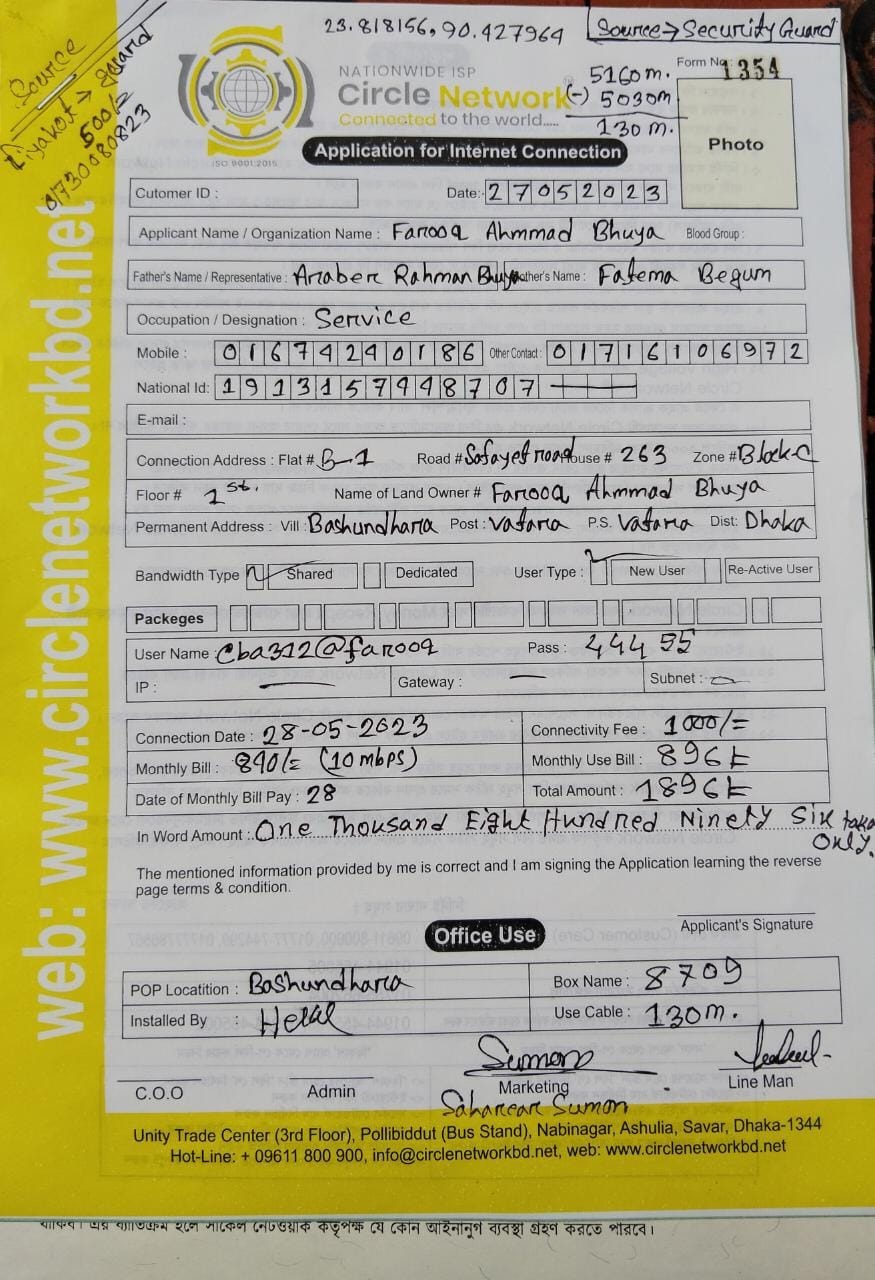 23.818156, 90.427964
Source→Security Guard
Source
Liyakot → guard
500/=
01730080823
NATIONWIDE ISP
Circle Network
Connected to the world.....
ISO 9001:2015
5160m.
(-) 5030m
130m.
Form No: 1354
Photo
Application for Internet Connection
Cutomer ID :
Date:- 27052023
Applicant Name / Organization Name : Farooq Ahmmad Bhuya Blood Group :
Father's Name / Representative : Araber Rahman Bhuya other's Name : Fatema Begum
Occupation / Designation : Service
Mobile : 01674240186 Other Contact : 01716106972
National Id: 1913157948707
E-mail :
Connection Address : Flat # B-1 Road # Safayet road House # 263 Zone # Block-C
Floor # 1st. Name of Land Owner # Farooq Ahmmad Bhuya
Permanent Address : Vill : Bashundhara Post : Vatara P.S. Vatara Dist: Dhaka
Bandwidth Type Shared Dedicated User Type : New User Re-Active User
Packeges
User Name : cba312@farooq Pass : 44495
IP : — Gateway : — Subnet : —
Connection Date : 28-05-2023 Connectivity Fee : 1000/=
Monthly Bill : 840/= (10mbps) Monthly Use Bill : 896
Date of Monthly Bill Pay : 28 Total Amount : 1896
In Word Amount : One Thousand Eight Hundred Ninety Six taka
Only.
The mentioned information provided by me is correct and I am signing the Application learning the reverse
page terms & condition.
Applicant's Signature
Office Use
POP Locatition : Bashundhara Box Name : 8709
Installed By : Helal Use Cable : 130m.
Sumon
C.O.O Admin Marketing Line Man
Saharear Sumon
Unity Trade Center (3rd Floor), Pollibiddut (Bus Stand), Nabinagar, Ashulia, Savar, Dhaka-1344
Hot-Line: + 09611 800 900, info@circlenetworkbd.net, web: www.circlenetworkbd.net
web: www.circlenetworkbd.net
থাকিব। এর ব্যতিক্রম হলে সার্কেল নেটওয়ার্ক কর্তৃপক্ষ যে কোন আইনানুগ ব্যবস্থা গ্রহণ করতে পারবে।